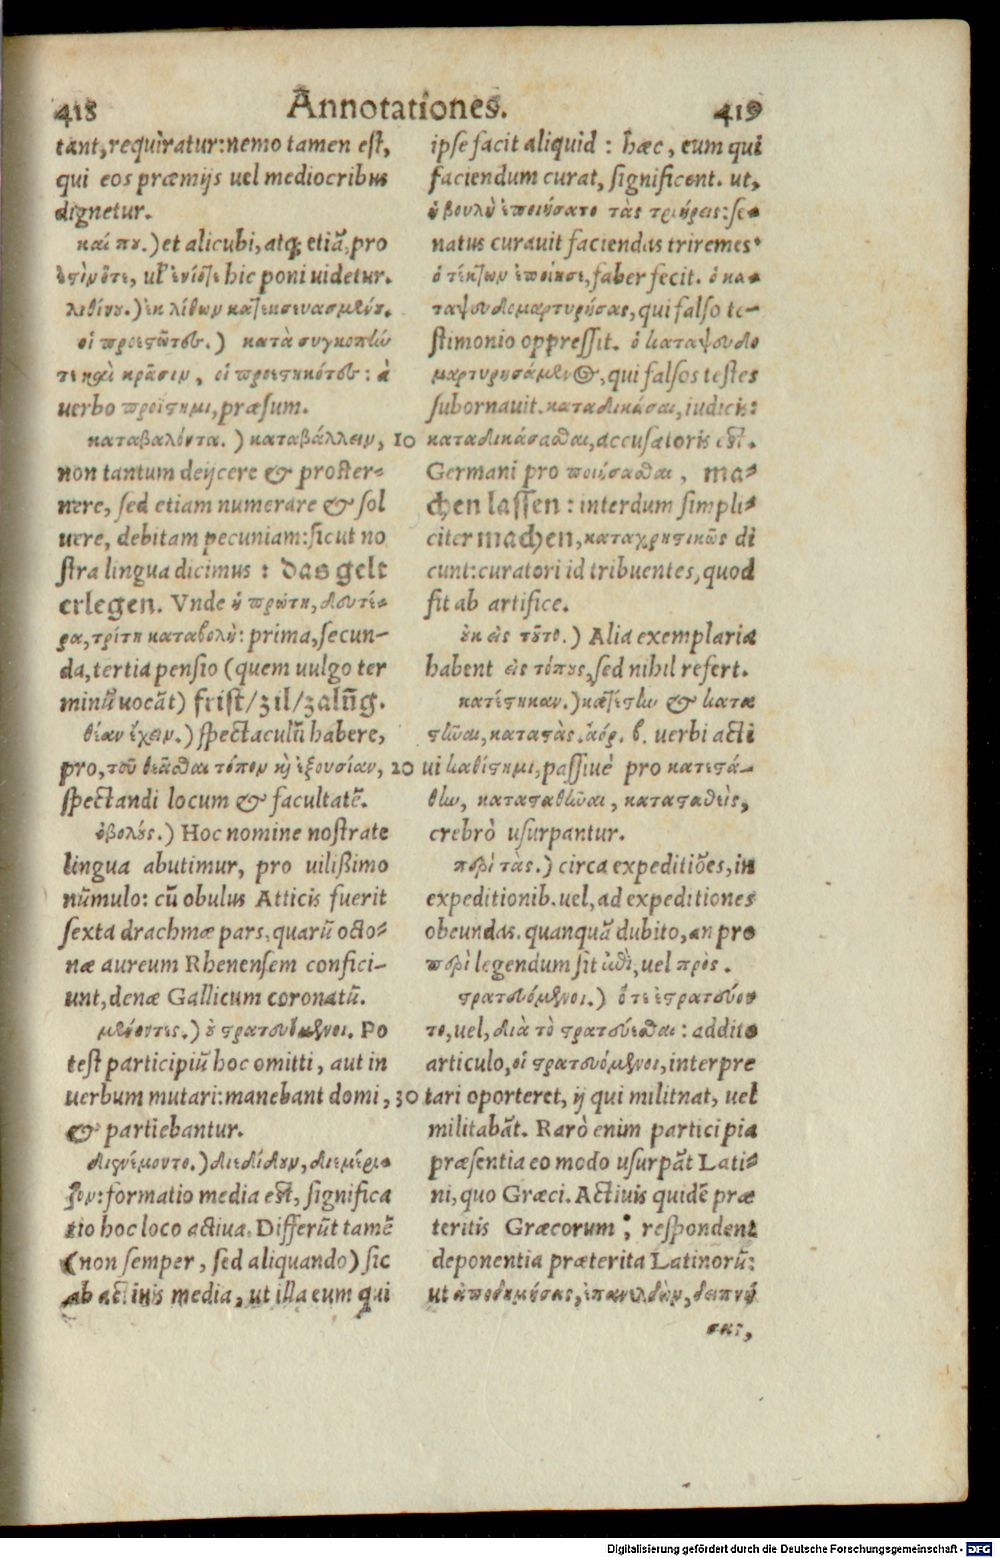 418 Annotationes. 419
tant, requiratur: nemo tamen est,
qui eos præmijs uel mediocribus
dignetur.
καί που.) et alicubi, atq; etiã, pro
ἐστὶν ὅτε, ul' ἐνίοτε hic poni uidetur.
λιθίνου.) ἐκ λίθων κατεσκευασμένου.
οἱ προεστῶτες.) κατὰ συγκοπὴν
τε καὶ κρᾶσιν, οἱ προεστηκότες: à
uerbo προίστημι, præsum.
καταβαλόντα.) καταβάλλειν, 10
non tantum deijcere & proster-
nere, sed etiam numerare & sol
uere, debitam pecuniam: sicut no
stra lingua dicimus : das gelt
erlegen. Vnde ἡ πρώτη, δευτέ-
ρα, τρίτη καταβολὴ: prima, secun-
da, tertia pensio (quem uulgo ter
minũ uocãt) frist/zil/zalũg.
θέαν ἔχειν.) spectaculũ habere,
pro, τοῦ θεᾶσθαι τόπον ἢ ἐξουσίαν, 20
spectandi locum & facultatẽ.
ὀβολούς.) Hoc nomine nostrate
lingua abutimur, pro uilißimo
nũmulo: cũ obulus Atticis fuerit
sexta drachmæ pars, quarũ octo-
næ aureum Rhenensem confici-
unt, denæ Gallicum coronatũ.
μένοντες.) οἱ στρατευόμενοι. Po
test participiũ hoc omitti, aut in
uerbum mutari: manebant domi, 30
& partiebantur.
διενέμοντο.) διεδίδουν, διεμέρι-
ζον: formatio media est, significa
tio hoc loco actiua. Differũt tamẽ
(non semper, sed aliquando) sic
ab actiuis media, ut illa eum qui
ipse facit aliquid : hæc, eum qui
faciendum curat, significent. ut,
ἡ βουλὴ ἐποιήσατο τὰς τριήρεις: se-
natus curauit faciendas triremes.
ὁ τέκτων ἐποίησε, faber fecit. ὁ κα-
ταψευδομαρτυρήσας, qui falso te-
stimonio oppressit. ὁ καταψευδο
μαρτυρησάμενος, qui falsos testes
subornauit. καταδικάσαι, iudicis:
καταδικάσασθαι, accusatoris est.
Germani pro ποιήσασθαι, ma-
chen lassen : interdum simpli-
citer machen, καταχρηστικῶς di
cunt: curatori id tribuentes, quod
fit ab artifice.
οὐκ εἰς τοῦτο.) Alia exemplaria
habent εἰς τόπους, sed nihil refert.
κατέστηκαν.) κατέστην & κατα
στῆναι, καταστὰς. ἀόρ. β. uerbi acti
ui καθίστημι, passiuè pro κατεστά-
θην, κατασταθῆναι, κατασταθεὶς,
crebrò usurpantur.
περὶ τὰς.) circa expeditiões, in
expeditionib. uel, ad expeditiones
obeundas. quanquã dubito, an pro
περὶ legendum sit ἐπὶ, uel πρὸς.
στρατευόμενοι.) ὅτε ἐστρατεύον
το, uel, διὰ τὸ στρατεύεσθαι: addito
articulo, οἱ στρατευόμενοι, interpre
tari oporteret, ij qui militnat, uel
militabãt. Rarò enim participia
præsentia eo modo usurpãt Lati-
ni, quo Græci. Actiuis quidẽ præ
teritis Græcorum ; respondent
deponentia præterita Latinorũ:
ut ἀποδημήσας, ἐπανελθὼν, δειπνή
σας,
Digitalisierung gefördert durch die Deutsche Forschungsgemeinschaft - DFG